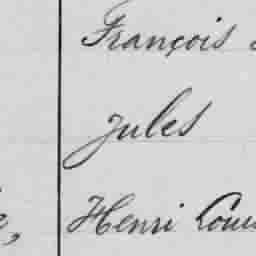 François
Jules
Henri